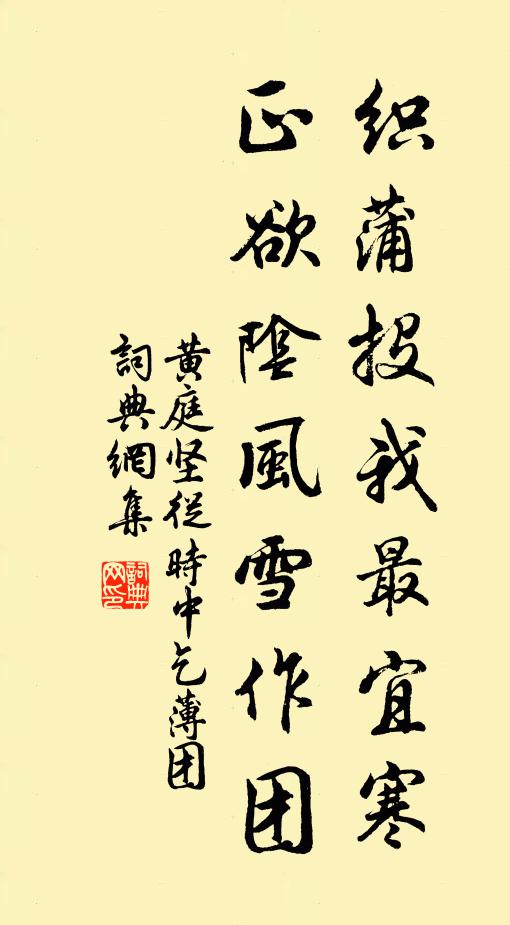 织蒲投我最宜寒
正欲陰風雪作团
黄庭坚從時中乞薄团
詞典網集
詞典网印